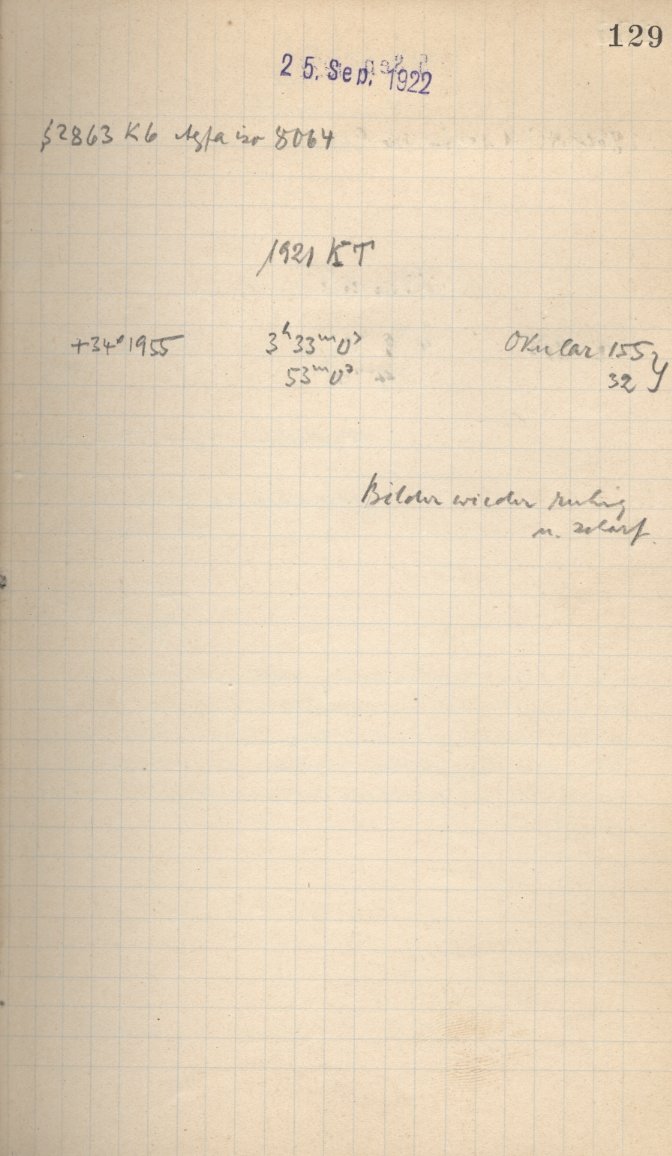 129
25. Sep. 1922
2863 K6 Agfa iso 8064
1921 KT
+34° 1955 3ʰ33ᵐ0ˢ Okular 155 y
53ᵐ0ˢ 32
Bilder wieder ruhig
u. scharf.